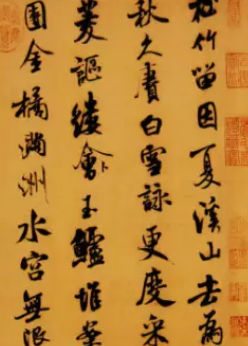 松竹留因夏溪山去為
秋久賡白雪詠更度采
菱謳縷會卜玉鱸堆案
團金橘滿洲水宮無限